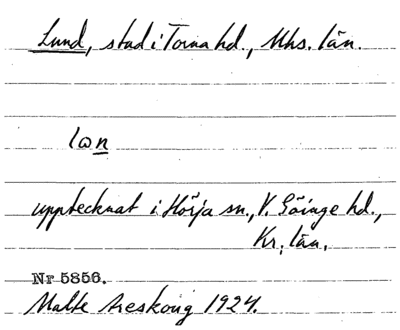 Lund, stad i Torna hd., Mhs. län.
lɷn
upptecknat i Hörja sn., V. Göinge hd.,
Kr. län.
Nr 5856.
Malte Areskoug 1924.